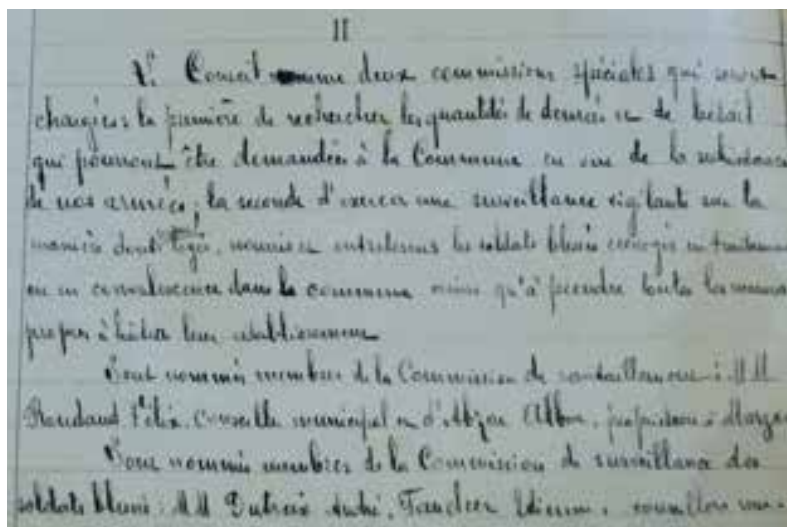 II
Le Conseil nomme deux commissions spéciales qui seront
chargées la première de rechercher les quantités de denrées et de bétail
qui pourront être demandées à la Commune en vue de la subsistance
de nos armées, la seconde d'exercer une surveillance vigilante sur la
manière dont logés, nourris et entretenus les soldats blessés en traitement
ou en convalescence dans la commune ainsi qu'à prendre toutes les mesures
propres à hâter leur rétablissement
Sont nommés membres de la Commission de ravitaillement : MM
Félix, Conseiller municipal et d'Abzac propriétaire à
Sont nommés membres de la Commission de surveillance des
soldats blessés : MM Dutreix André, Etienne, conseillers